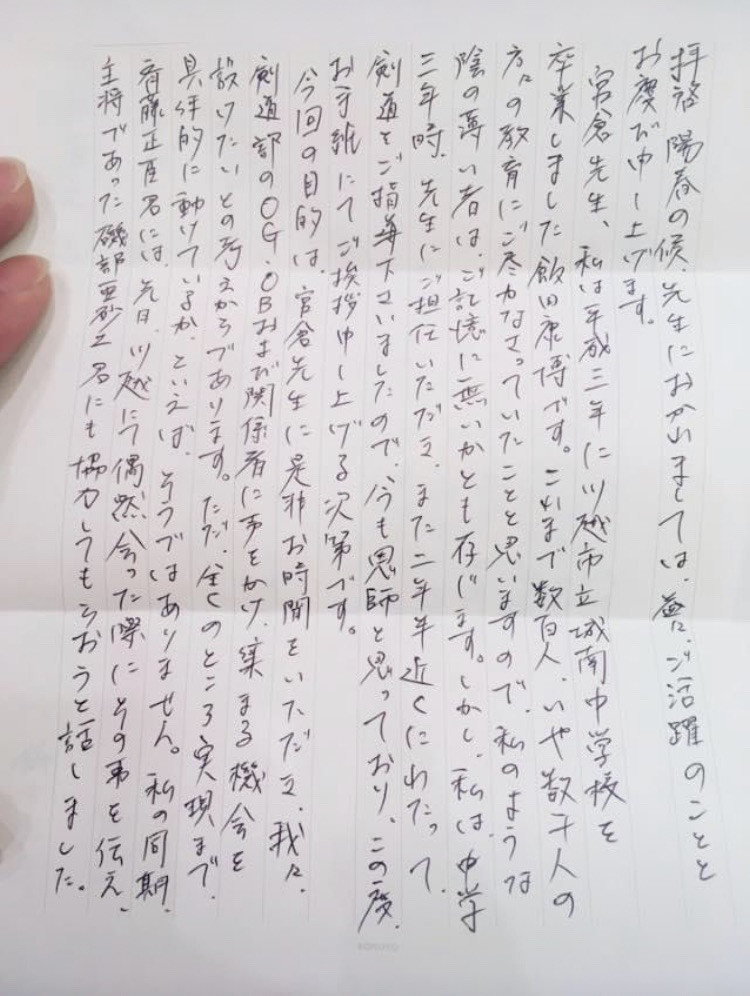 拝啓 陽春の候、先生におかれましては、益々ご活躍のことと
お慶び申し上げます。
宮倉先生、私は平成三年に川越市立城南中学校を
卒業しました飯田康博です。これまで数百人、いや数千人の
方々の教育にご尽力なさっていたことと思いますので、私のような
陰の薄い者は、ご記憶に無いかとも存じます。しかし、私は、中学
三年時、先生にご担任いただき、また二年半近くにわたって、
剣道をご指導下さいましたので、今も恩師と思っており、この度、
お手紙にてご挨拶申し上げる次第です。
今回の目的は、宮倉先生に是非お時間をいただき、我々、
剣道部のOG・OBおよび関係者に声をかけ、集まる機会を
設けたいとの考えからであります。ただ、全くのところ実現まで、
具体的に動けているか、といえば、そうではありません。私の同期、
斉藤正直君には、先日、川越にて偶然会った際にその事を伝え、
主将であった磯部亜砂工君にも協力してもらおうと話しました。